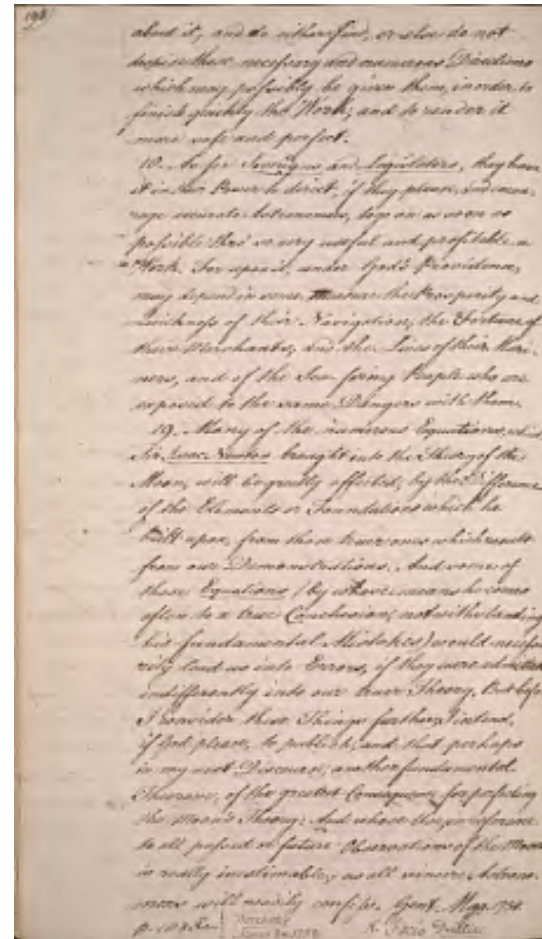 198
about it, and do either find, or else do not
despise those necessary and numerous Directions
which may possibly be given them, in order to
finish quickly the Work, and to render it
more safe and perfect.
18. As for Sovereigns and Legislators, they have
it in their Power to direct, if they please, and encou-
rage accurate Astronomers, to go on as soon as
possible thro' so very useful and profitable a
Work. For upon it, under God's Providence,
may depend in some measure the Prosperity and
Quickness of their Navigation, the Fortune of
their Merchants, and the Lives of their Mari-
ners, and of the Sea faring People who are
exposed to the same Dangers with them.
19. Many of the numerous Equations, which
Sir Isaac Newton brought into the Theory of the
Moon, will be greatly affected, by the Difference
of the Elements or Foundations which he
built upon, from those truer ones which result
from our Demonstrations. And some of
these Equations (by whose means he comes
often to a true Conclusion, notwithstanding
his fundamental Mistakes) would necessa-
rily lead us into Errors, if they were admitted
indifferently into our truer Theory. But before
I consider these Things further, I intend,
if God please, to publish, and that perhaps
in my next Discourse, another fundamental
Theorem, of the greatest Consequence, for perfecting
the Moon's Theory: And whose Use, in reference
to all passed or future Observations of the Moon
is really inestimable, as all sincere Astrono-
mers will readily confess. Gent. Mag. 1738.
N. Facio Duillier